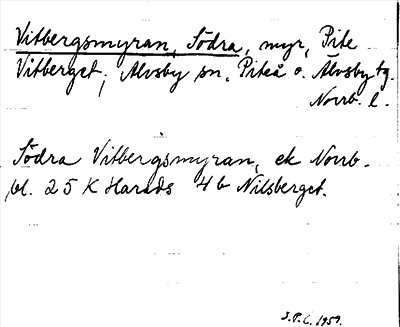 Vitbergsmyran, Södra, myr, Pite
Vitberget, Älvsby sn, Piteå o. Älvsby tg.
Norrb. l.
Södra Vitbergsmyran, ek Norrb.
bl. 25 K Harads 4b Nilsberget.
1959.